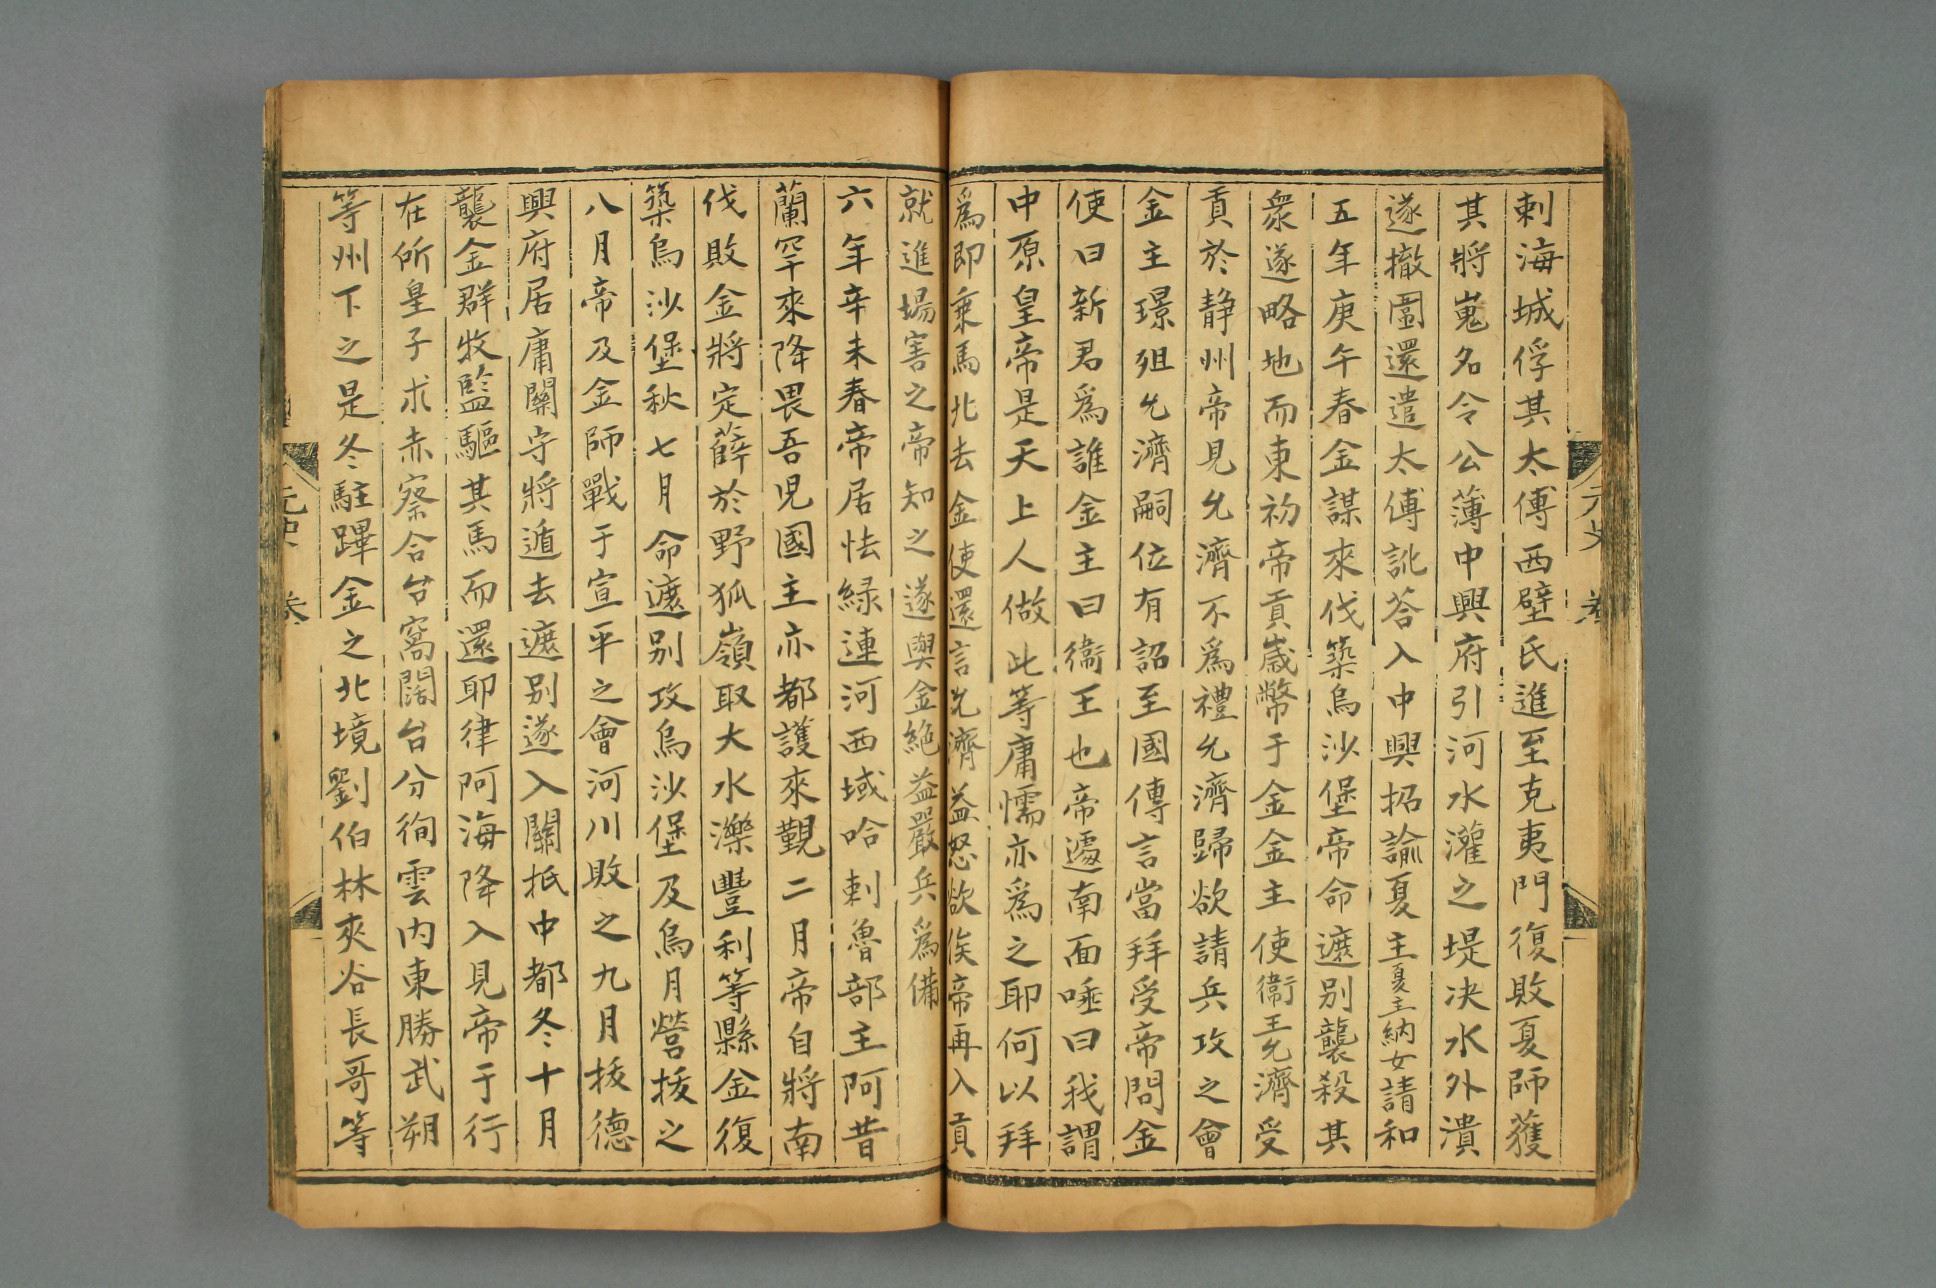 剌海城俘其太傅西壁氏進至克夷門復敗夏師獲
其將嵬名令公薄中興府引河水灌之堤决水外潰
遂撤圍還遣太傅訛荅入中興招諭夏主夏主納女請和
五年庚午春金謀來伐築烏沙堡帝命遮别襲殺其
衆遂略地而東初帝貢歲幣于金金主使衞王允濟受
貢於静州帝見允濟不爲禮允濟歸欲請兵攻之會
金主璟殂允濟嗣位有詔至國傳言當拜受帝問金
使曰新君爲誰金主曰衞王也帝遽南面唾曰我謂
中原皇帝是天上人做此等庸懦亦爲之耶何以拜
爲即乗馬北去金使還言允濟益怒欲俟帝再入貢
就進場害之帝知之遂與金絶益嚴兵爲備
六年辛未春帝居怯緑連河西域哈剌魯部主阿昔
蘭罕來降畏吾児國主亦都護來覲二月帝自將南
伐敗金將定薛於野狐嶺取大水濼豐利等縣金復
築烏沙堡秋七月命遮别攻烏沙堡及烏月營拔之
八月帝及金師戰于宣平之會河川敗之九月拔德
興府居庸關守將遁去遮别遂入關抵中都冬十月
襲金群牧監驅其馬而還耶律阿海降入見帝于行
在所皇子求赤察合台窩闊台分徇雲内東勝武朔
等州下之是冬駐蹕金之北境劉伯林夾谷長哥等
元史 卷